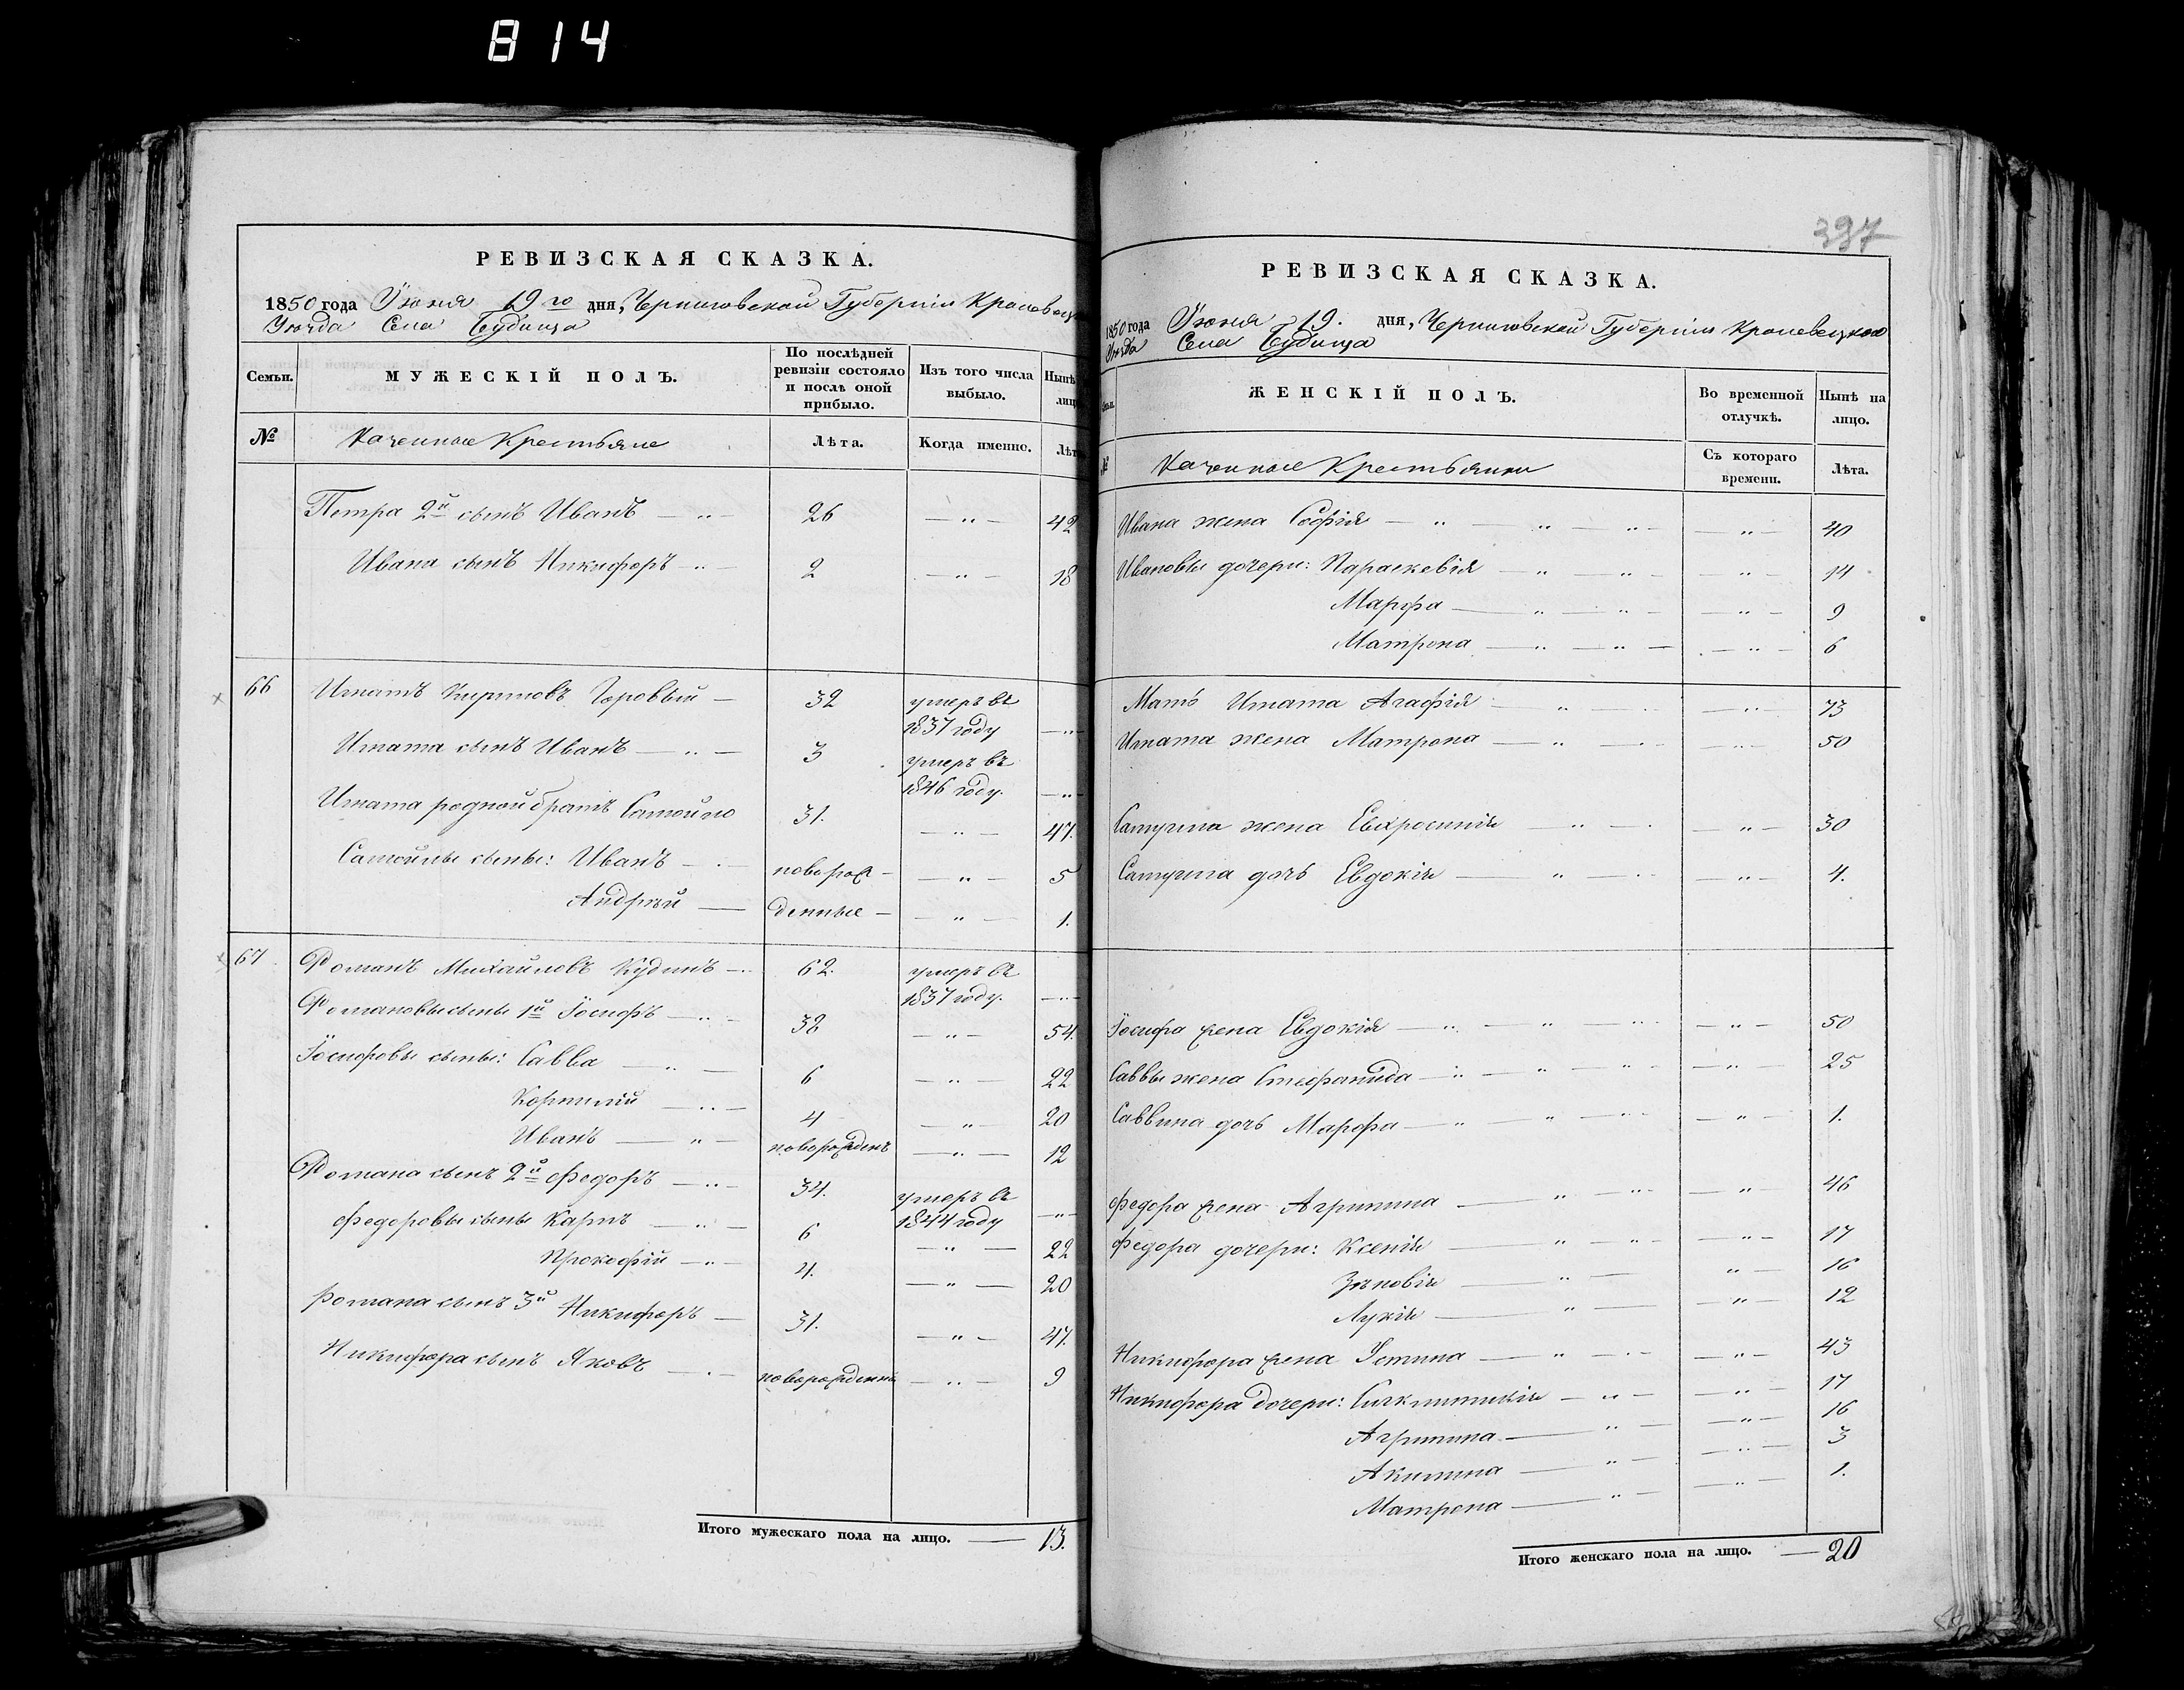 814
РЕВИЗСКАЯ СКАЗКА.
1850 года Іюня 19го дня, Черниговской Губерніи Кролевец
Уѣзда Села Будища
Семьи.
МУЖЕСКІЙ ПОЛЪ.
По послѣдней ревизіи состояло и послѣ оной прибыло.
Изъ того числа выбыло.
Нынѣ лиц
№
Казенные Крестьяне
Лѣта.
Когда именно.
Лѣт
Петра 2й сынъ Иванъ — „ — 26 — „ — 42
Ивана сынъ Никифоръ — „ — 2 — „ — 18
66 Игнатъ Кириловъ — 32 умеръ въ
1837 году — „ —
Игната сынъ Иванъ — „ — 3 умеръ въ
1846 году. — „ —
Игната родной братъ Самойло 31. — „ — 47.
Самойлы сыны: Иванъ — „ — новорож- — „ — 5
Андрѣй — денные — — „ — 1.
67 Романъ Михайловъ Кудинъ — „ 62. умеръ въ
1837 году. — „ —
Романовы сыны 1й Іосифъ — „ — 38 — „ — 54.
Іосифовы сыны: Савва — „ — 6 — „ — 22
Корнилій — „ — 4 — „ — 20
Иванъ — „ — новорожденъ — „ — 12
Романа сынъ 2й Федоръ — „ — 34. умеръ въ
1844 году — „ —
Федоровы сыны Карпъ — „ — 6 — „ — 22
Прокофій — „ — 4. — „ — 20
Романа сынъ 3й Никифоръ — 31. — „ — 47.
Никифора сынъ Яковъ — „ — новорожденъ — „ — 9
Итого мужескаго пола на лицо. — 13.
397
РЕВИЗСКАЯ СКАЗКА.
1850 года Іюня 19. дня, Черниговской Губерніи Кролевецкаго
Уѣзда Села Будища
ЖЕНСКІЙ ПОЛЪ.
Во временной отлучкѣ.
Нынѣ на лицо.
№
Казенные Крестьянки
Съ котораго времени.
Лѣта.
Ивана жена Софія — „ — „ — „ — — „ — 40
Ивановы дочери: Параскевія — „ — „ — — „ — 14
Марфа — „ — „ — — „ — 9
Матрена — „ — „ — — „ — 6
Мать Игната Агафія — „ — — „ — 73
Игната жена Матрона — „ — — „ — 50
Самуила жена Евфросинія — „ — „ — 30
Самуила дочь Евдокія — „ — — „ — 4.
Іосифа жена Евдокія — „ — „ — „ — — „ — 50
Саввы жена Стефанида — „ — „ — „ — — „ — 25
Саввина дочь Марфа — „ — „ — „ — — „ — 1.
Федора жена Агрипина — „ — „ — — „ — 46
Федора дочери: Ксенія — „ — „ — — „ — 17
Зѣновія — „ — „ — 16
Лукія — „ — „ — 12
Никифора жена Устина — „ — „ — — „ — 43
Никифора дочери: — „ — — „ — 17
Агрипина — „ — — „ — 16
Акилина — „ — — „ — 3
Матрена — „ — — „ — 1.
Итого женскаго пола на лицо. — 20